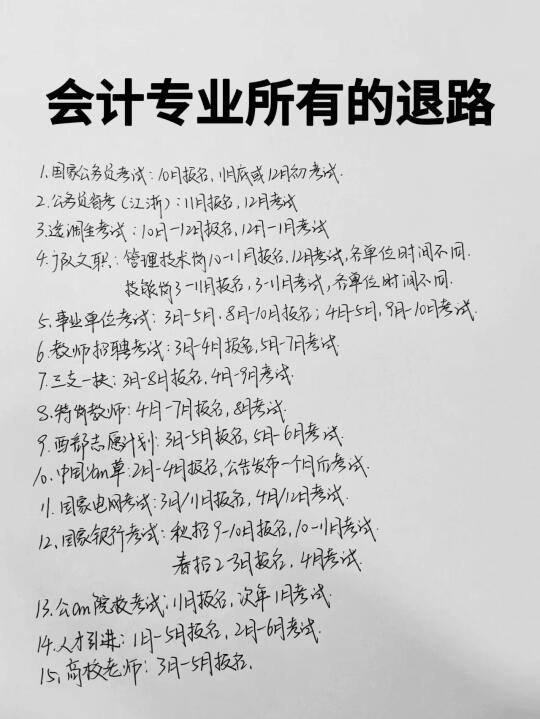 会计专业所有的退路
1.国家公务员考试:10月报名,11月底或12月初考试.
2.公务员省考(江浙):11月报名,12月考试
3.选调生考试:10月-12月报名,12月-1月考试
4.jun队文职:管理技术岗10-11月报名,12月考试,各单位时间不同.
技能岗3-11月报名,3-11月考试,各单位时间不同.
5.事业单位考试:3月-5月,8月-10月报名;4月-5月,9月-10月考试.
6.教师招聘考试:3月-4月报名,5月-7月考试.
7.三支一扶:3月-8月报名,4月-9月考试.
8.特岗教师:4月-7月报名,8月考试.
9.西部志愿计划:3月-5月报名,5月-6月考试.
10.中国yan草:2月-4月报名,公告发布一个月后考试.
11.国家电网考试:3月/11月报名,4月/12月考试.
12.国家银行考试:秋招9-10月报名,10-11月考试.
春招2-3月报名,4月考试.
13.公an院校考试:11月报名,次年1月考试.
14.人才引进:1月-5月报名,2月-6月考试.
15.高校老师:3月-5月报名.